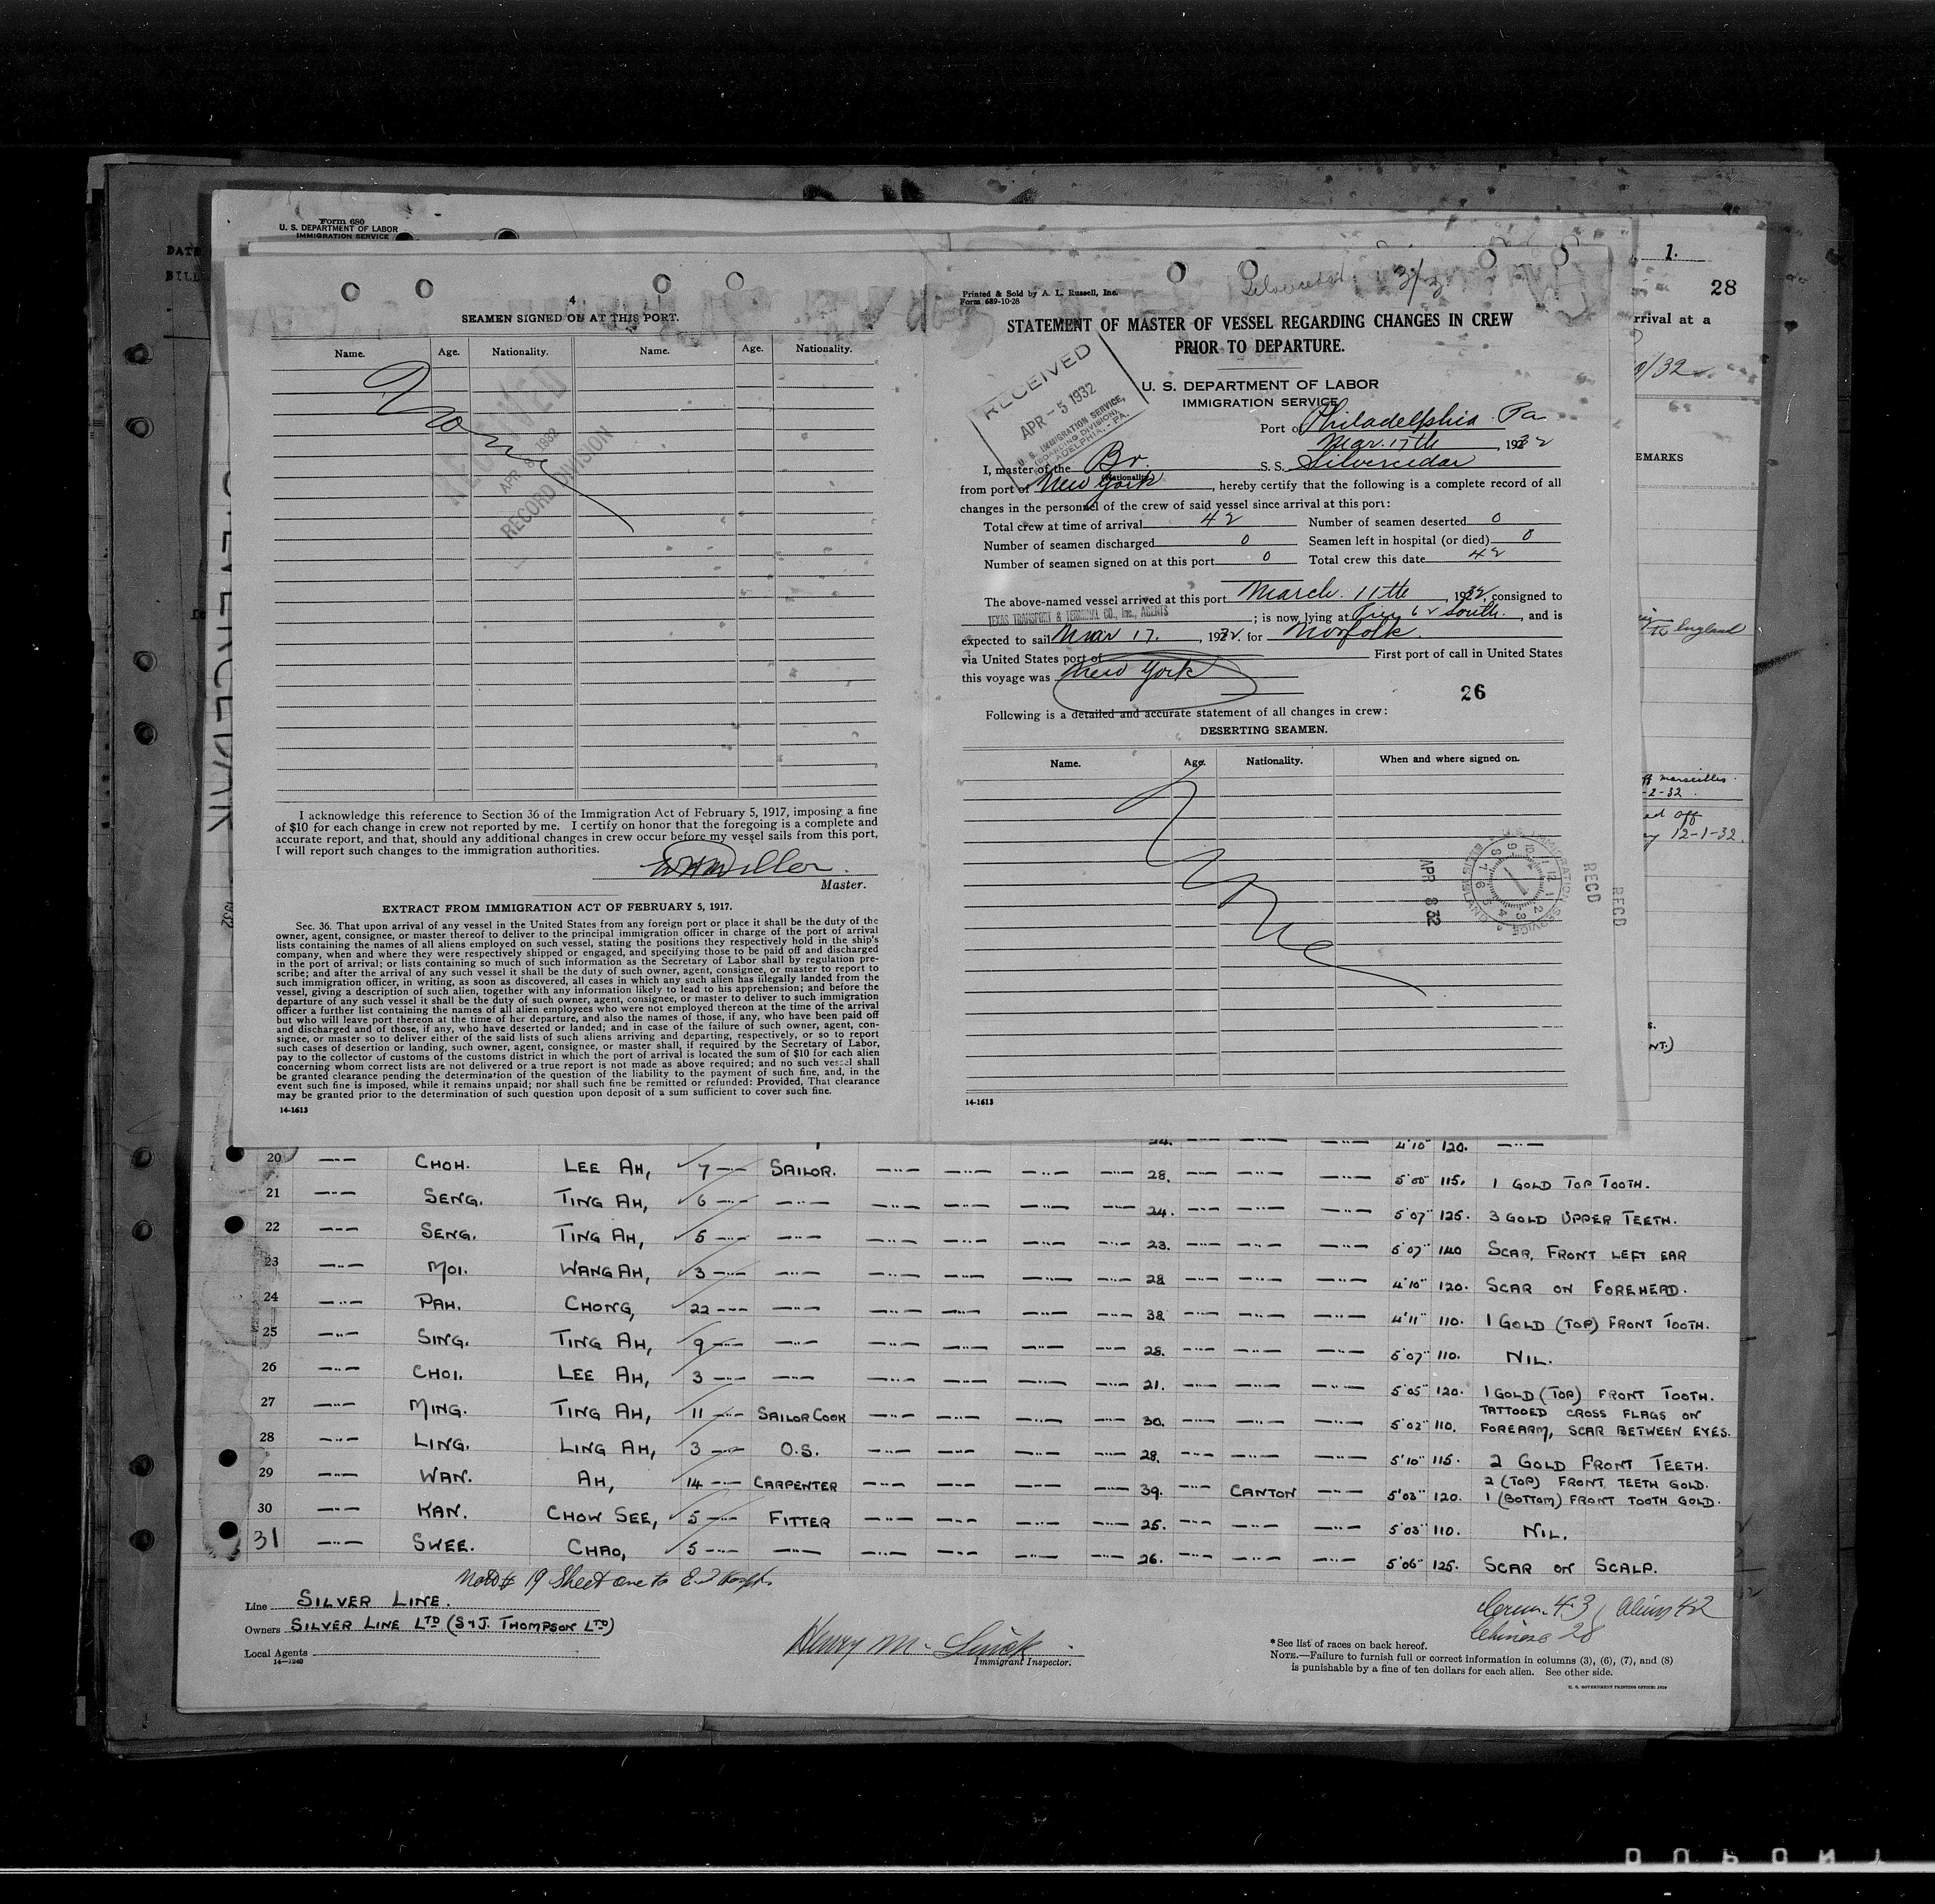 Form 680
U. S. DEPARTMENT OF LABOR
IMMIGRATION SERVICE
DATE
BILL
1.
28
rrival at a
EMARKS
to England
ff marseilles
-2-32
ed off
12-1-32.
NT.)
4
SEAMEN SIGNED ON AT THIS PORT.
Name. Age. Nationality. Name. Age. Nationality.
None
RECEIVED
APR 8 1932
RECORD DIVISION
I acknowledge this reference to Section 36 of the Immigration Act of February 5, 1917, imposing a fine
of $10 for each change in crew not reported by me. I certify on honor that the foregoing is a complete and
accurate report, and that, should any additional changes in crew occur before my vessel sails from this port,
I will report such changes to the immigration authorities.
Miller
Master.
EXTRACT FROM IMMIGRATION ACT OF FEBRUARY 5, 1917.
Sec. 36. That upon arrival of any vessel in the United States from any foreign port or place it shall be the duty of the
owner, agent, consignee, or master thereof to deliver to the principal immigration officer in charge of the port of arrival
lists containing the names of all aliens employed on such vessel, stating the positions they respectively hold in the ship's
company, when and where they were respectively shipped or engaged, and specifying those to be paid off and discharged
in the port of arrival; or lists containing so much of such information as the Secretary of Labor shall by regulation pre-
scribe; and after the arrival of any such vessel it shall be the duty of such owner, agent, consignee, or master to report to
such immigration officer, in writing, as soon as discovered, all cases in which any such alien has illegally landed from the
vessel, giving a description of such alien, together with any information likely to lead to his apprehension; and before the
departure of any such vessel it shall be the duty of such owner, agent, consignee, or master to deliver to such immigration
officer a further list containing the names of all alien employees who were not employed thereon at the time of the arrival
but who will leave port thereon at the time of her departure, and also the names of those, if any, who have been paid off
and discharged and of those, if any, who have deserted or landed; and in case of the failure of such owner, agent, con-
signee, or master so to deliver either of the said lists of such aliens arriving and departing, respectively, or so to report
such cases of desertion or landing, such owner, agent, consignee, or master shall, if required by the Secretary of Labor,
pay to the collector of customs of the customs district in which the port of arrival is located the sum of $10 for each alien
concerning whom correct lists are not delivered or a true report is not made as above required; and no such vessel shall
be granted clearance pending the determination of the question of the liability to the payment of such fine, and, in the
event such fine is imposed, while it remains unpaid; nor shall such fine be remitted or refunded: Provided, That clearance
may be granted prior to the determination of such question upon deposit of a sum sufficient to cover such fine.
14-1613
Silvercedar 3/3
Printed & Sold by A. L. Russell, Inc.
Form 689-10-28
STATEMENT OF MASTER OF VESSEL REGARDING CHANGES IN CREW
PRIOR TO DEPARTURE.
RECEIVED
APR - 5 1932
U. S. IMMIGRATION SERVICE,
(BOARDING DIVISION),
PHILADELPHIA, - PA.
U. S. DEPARTMENT OF LABOR
IMMIGRATION SERVICE
Port of Philadelphia Pa
Mar. 17th, 1932
I, master of the Br. S. S. Silvercedar
(Nationality)
from port of New York, hereby certify that the following is a complete record of all
changes in the personnel of the crew of said vessel since arrival at this port:
Total crew at time of arrival 42 Number of seamen deserted 0
Number of seamen discharged 0 Seamen left in hospital (or died) 0
Number of seamen signed on at this port 0 Total crew this date 42
The above-named vessel arrived at this port March 11th, 1932, consigned to
TEXAS TRANSPORT & TERMINAL CO., Inc., AGENTS ; is now lying at Pier 62 South, and is
expected to sail Mar 17, 1932 for Norfolk.
via United States port of First port of call in United States
this voyage was New York
26
Following is a detailed and accurate statement of all changes in crew:
DESERTING SEAMEN.
Name. Age. Nationality. When and where signed on.
None
APR 8 32
RECD
RECD
14-1613
24. 4'10" 120.
20 CHOH. LEE AH, 7 SAILOR. 28. 5'00" 115. 1 GOLD TOP TOOTH.
21 SENG. TING AH, 6 24. 5'07" 125. 3 GOLD UPPER TEETH.
22 SENG. TING AH, 5 23. 5'07" 140 SCAR, FRONT LEFT EAR
23 MOI. WANG AH, 3 28 4'10" 120. SCAR ON FOREHEAD.
24 PAH. CHONG, 22 38 4'11" 110. 1 GOLD (TOP) FRONT TOOTH.
25 SING. TING AH, 9 28. 5'07" 110. NIL.
26 CHOI. LEE AH, 3 21. 5'05" 120. 1 GOLD (TOP) FRONT TOOTH.
27 MING. TING AH, 11 SAILOR COOK 30. 5'02" 110. TATTOOED CROSS FLAGS ON
FOREARM, SCAR BETWEEN EYES.
28 LING. LING AH, 3 O.S. 28. 5'10" 115. 2 GOLD FRONT TEETH.
29 WAN. AH, 14 CARPENTER 39. CANTON 5'03" 120. 2 (TOP) FRONT TEETH GOLD.
1 (BOTTOM) FRONT TOOTH GOLD.
30 KAN. CHOW SEE, 5 FITTER 25. 5'03" 110. NIL.
31 SWEE. CHAO, 5 26. 5'06" 125. SCAR ON SCALP.
19 Sheet one to
Line SILVER LINE.
Owners SILVER LINE LTD (S & J. THOMPSON LTD)
Local Agents
14-1240
Henry M.
Immigrant Inspector.
Crew 43, Aliens 42
Chinese 28
*See list of races on back hereof.
NOTE.—Failure to furnish full or correct information in columns (3), (6), (7), and (8)
is punishable by a fine of ten dollars for each alien. See other side.
U. S. GOVERNMENT PRINTING OFFICE: 1929